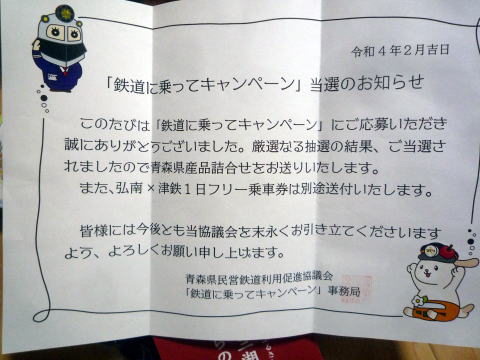 令和４年２月吉日
「鉄道に乗ってキャンペーン」当選のお知らせ
このたびは「鉄道に乗ってキャンペーン」にご応募いただき
誠にありがとうございました。厳選なる抽選の結果、ご当選さ
れましたので青森県産品詰合せをお送りいたします。
また、弘南×津鉄１日フリー乗車券は別途送付いたします。
皆様には今後とも当協議会を末永くお引き立てくださいます
よう、よろしくお願い申し上げます。
青森県民営鉄道利用促進協議会
「鉄道に乗ってキャンペーン」事務局